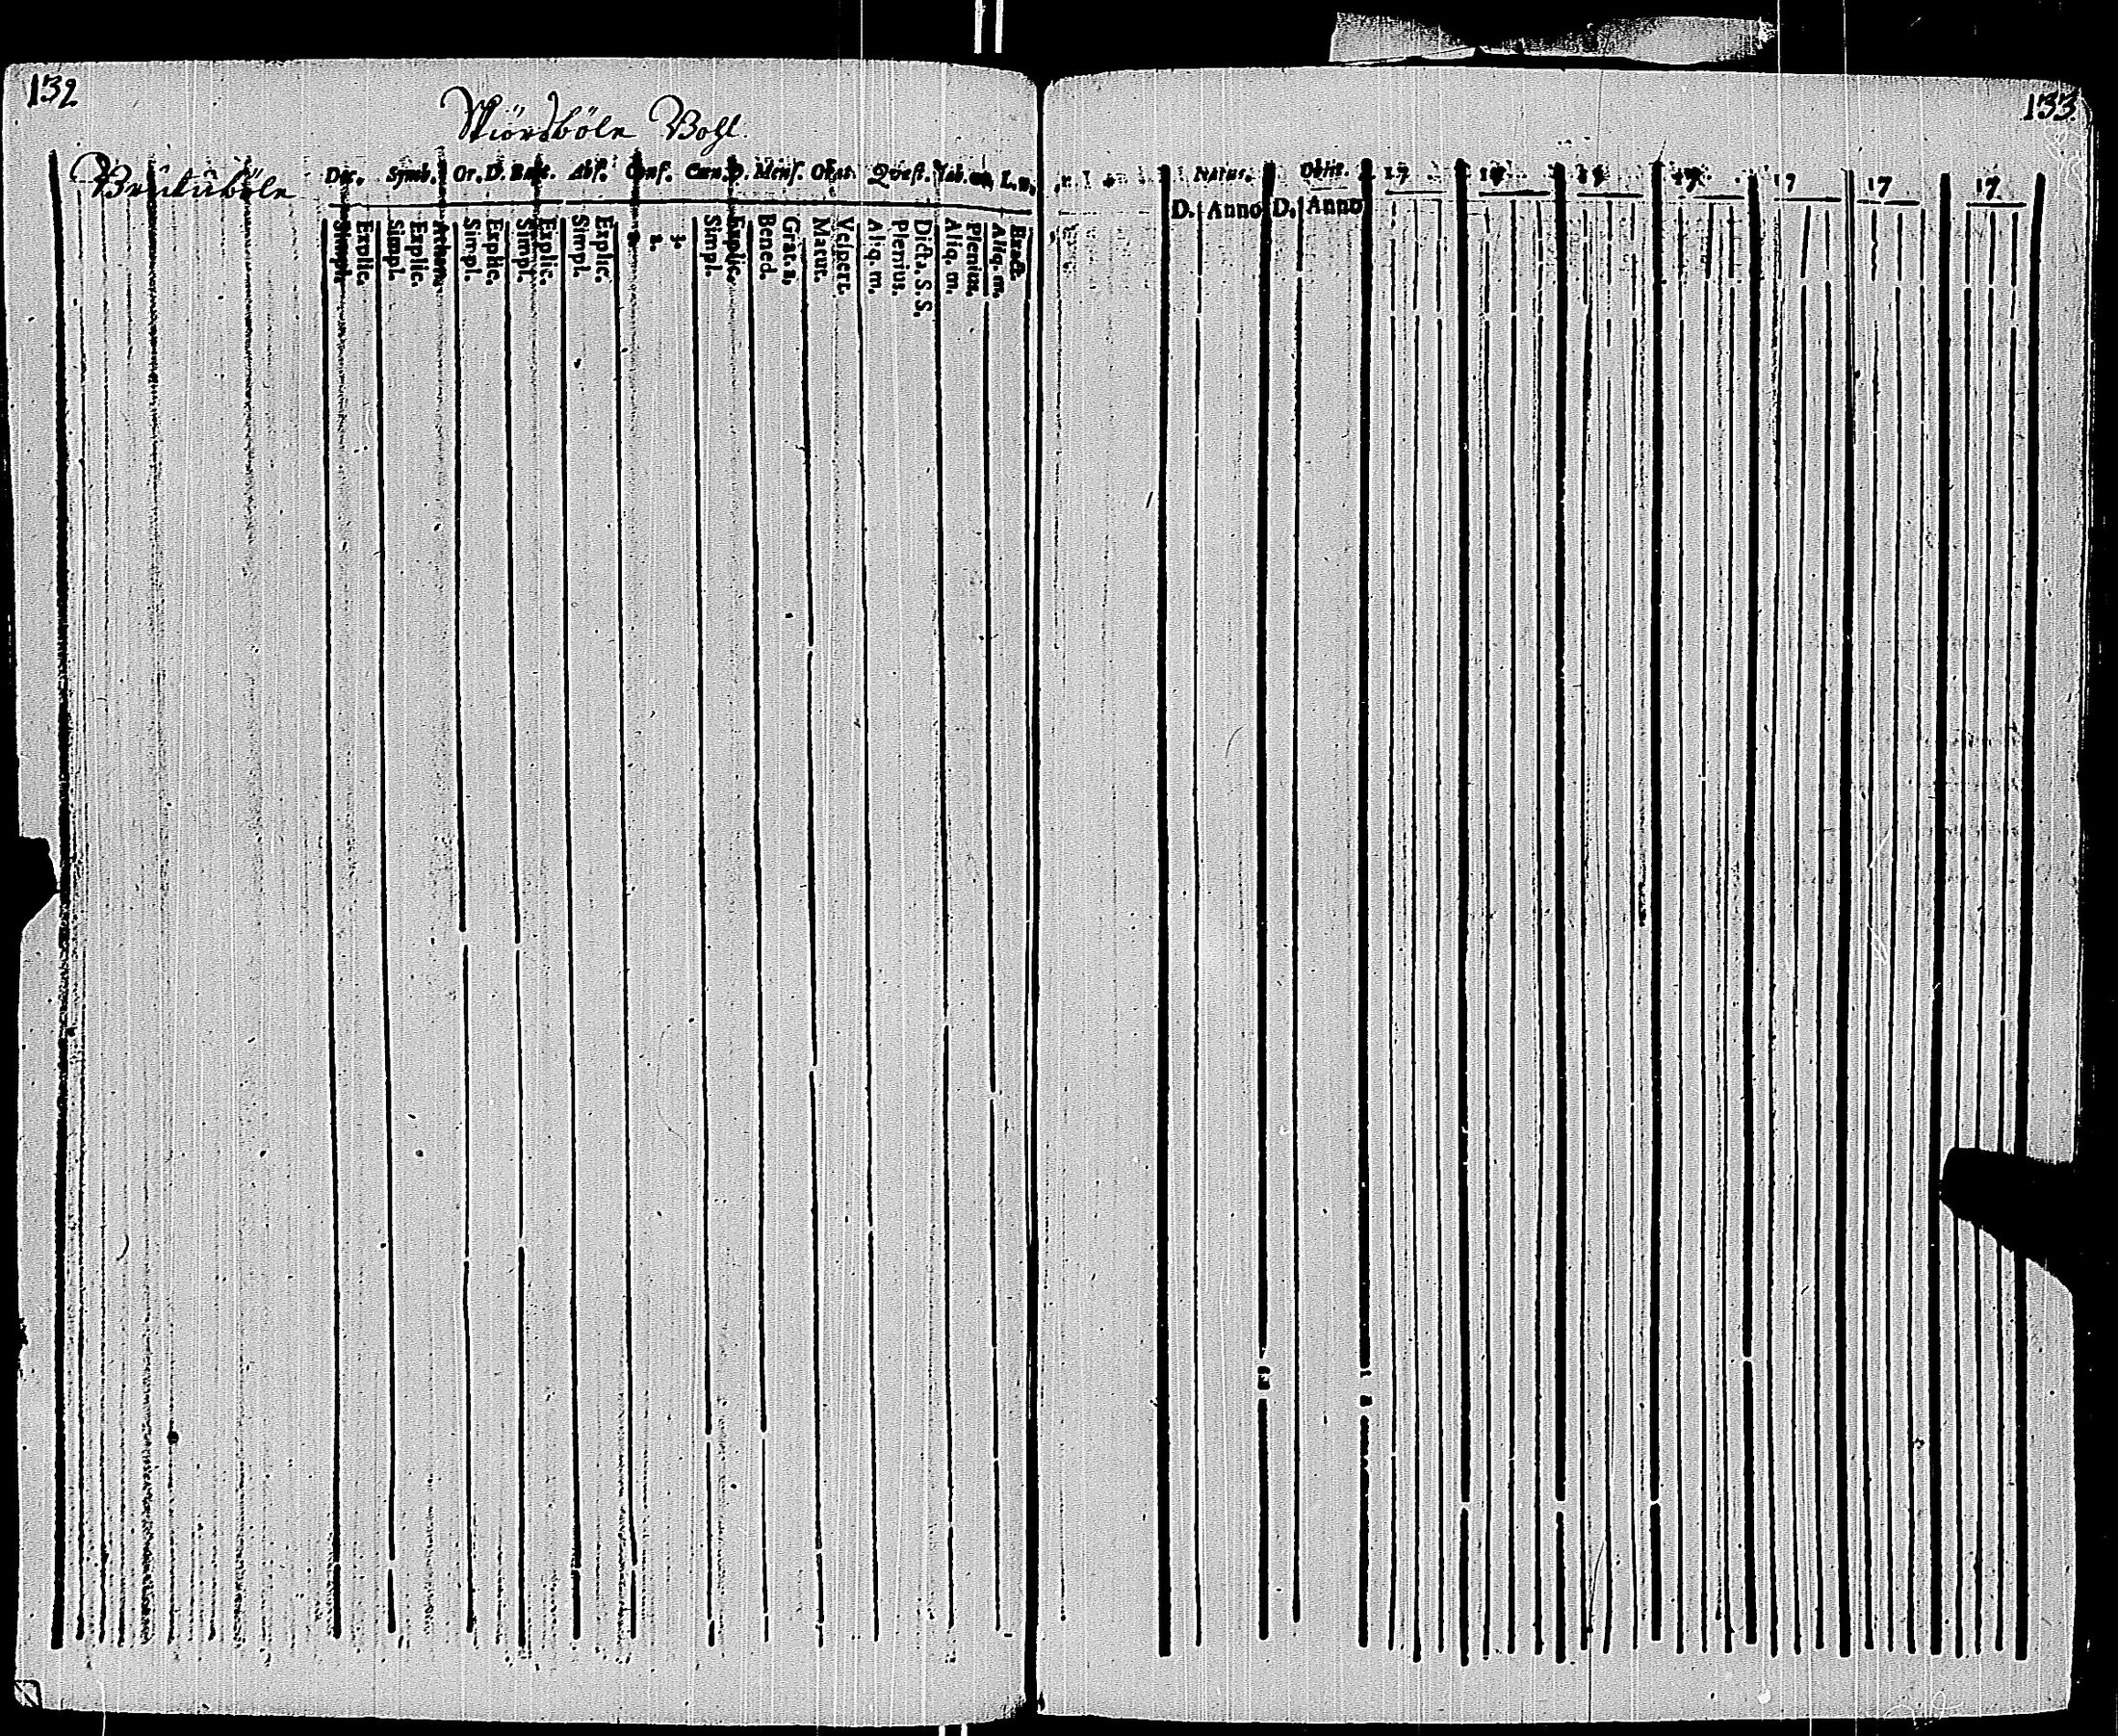 132
Mörsböle Bohl.
Brutuböle
Dec. Symb. Or. D. Bapt. Abs. Conf. Cœn. D. Mens. Orat. Quæst. Tab. L. n.
Simpl. Explic. Simpl. Explic. Athan. Simpl. Explic. Simpl. Explic. Simpl. Explic. 2. 3. Simpl. Explic. Bened. Grat. a. Matut. Vespert. Aliq. m. Plenius. Dicta. S. S. Aliq. m. Plenius. Aliq. m. Exact.
133
Natus. Obiit. 17 17 17 17 17 17 17
D. Anno D. Anno